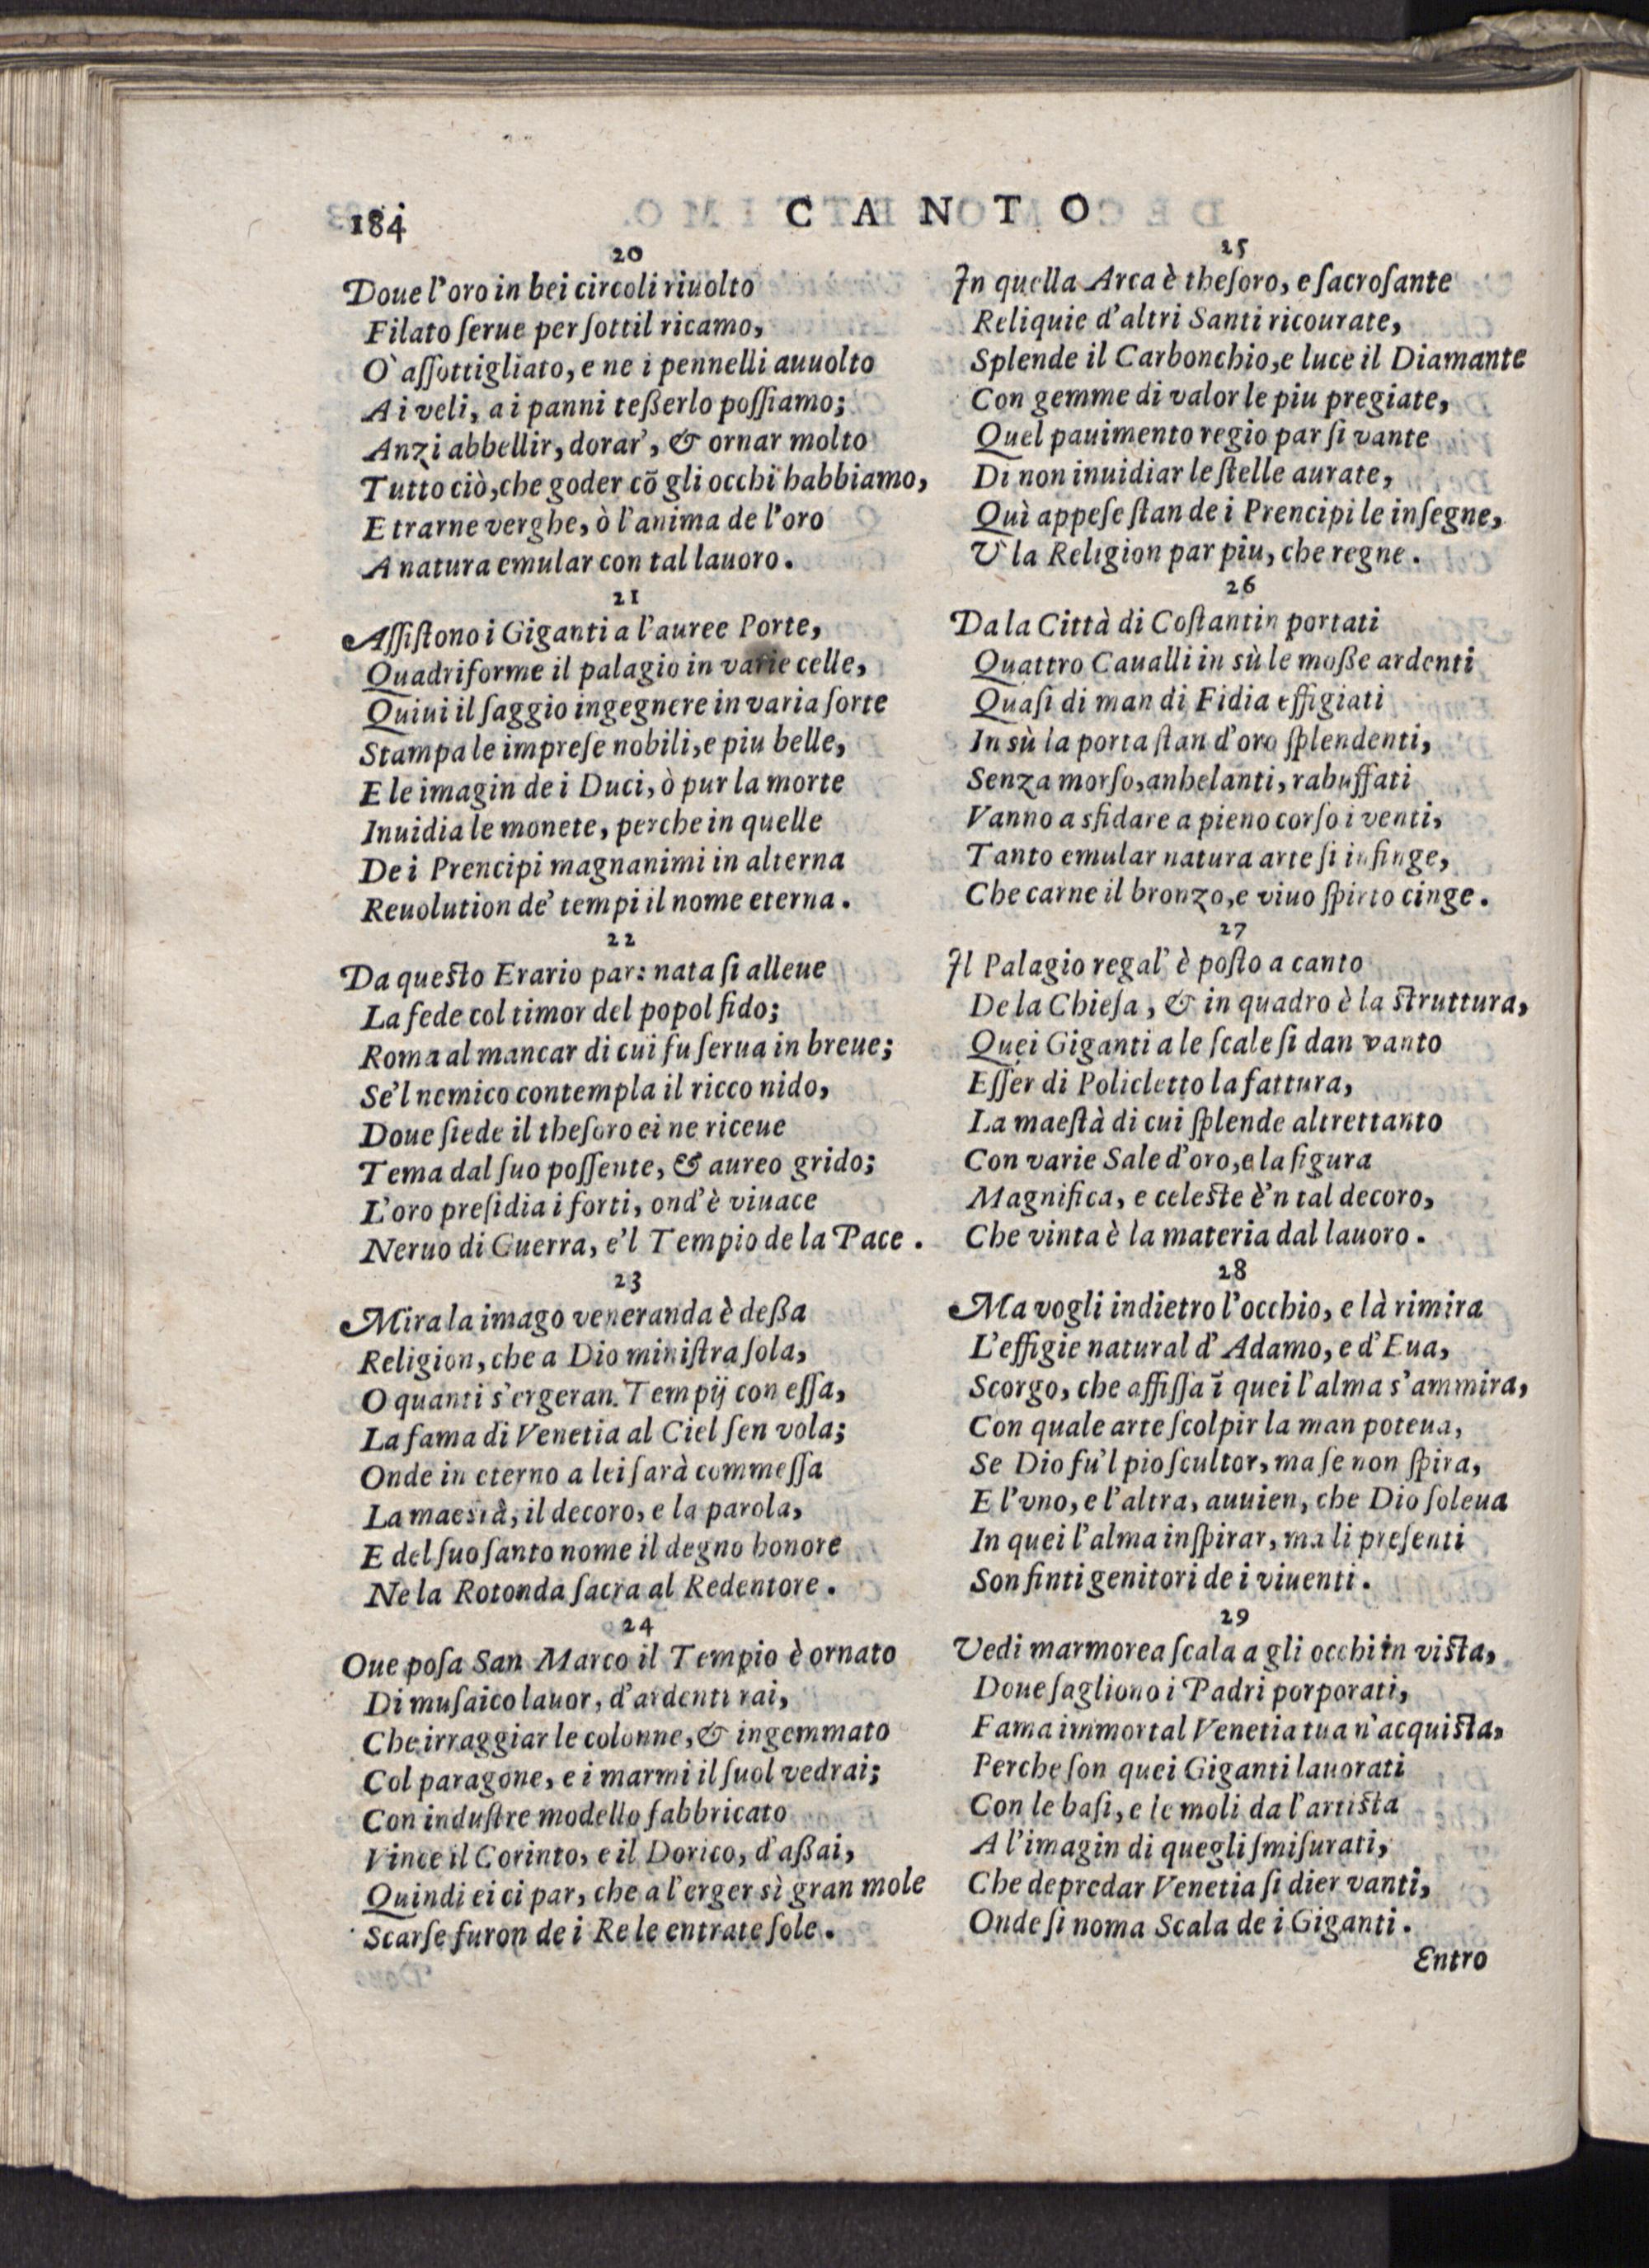 184
CANTO
20
Doue l'oro in bei circoli riuolto
Filato ſerue per ſottil ricamo,
O' aſſottigliato, e ne i pennelli auuolto
A i veli, a i panni teßerlo poſſiamo;
Anzi abbellir, dorar', & ornar molto
Tutto ciò, che goder cõ gli occhi habbiamo,
E trarne verghe, ò l'anima de l'oro
A natura emular con tal lauoro.
21
Aſſiſtono i Giganti a l'auree Porte,
Quadriforme il palagio in varie celle,
Quiui il ſaggio ingegnere in varia ſorte
Stampa le impreſe nobili, e piu belle,
E le imagin de i Duci, ò pur la morte
Inuidia le monete, perche in quelle
De i Prencipi magnanimi in alterna
Reuolution de' tempi il nome eterna.
22
Da queſto Erario par: nata ſi alleue
La fede col timor del popol fido;
Roma al mancar di cui fu ſerua in breue;
Se'l nemico contempla il ricco nido,
Doue ſiede il theſoro ei ne riceue
Tema dal ſuo poſſente, & aureo grido;
L'oro preſidia i forti, ond'è viuace
Neruo di Guerra, e'l Tempio de la Pace.
23
Mira la imago veneranda è deßa
Religion, che a Dio miniſtra ſola,
O quanti s'ergeran Tempij con eſſa,
La fama di Venetia al Ciel ſen vola;
Onde in eterno a lei ſarà commeſſa
La maestà, il decoro, e la parola,
E del ſuo ſanto nome il degno honore
Ne la Rotonda ſacra al Redentore.
24
Oue poſa San Marco il Tempio è ornato
Di muſaico lauor, d'ardenti rai,
Che irraggiar le colonne, & ingemmato
Col paragone, e i marmi il ſuol vedrai;
Con induſtre modello fabbricato
Vince il Corinto, e il Dorico, d'aßai,
Quindi ei ci par, che a l'erger sì gran mole
Scarſe furon de i Re le entrate ſole.
25
In quella Arca è theſoro, e ſacroſante
Reliquie d'altri Santi ricourate,
Splende il Carbonchio, e luce il Diamante
Con gemme di valor le piu pregiate,
Quel pauimento regio par ſi vante
Di non inuidiar le ſtelle aurate,
Quì appeſe ſtan de i Prencipi le inſegne,
V' la Religion par piu, che regne.
26
Da la Città di Coſtantin portati
Quattro Caualli in sù le moße ardenti
Quaſi di man di Fidia effigiati
In sù la porta ſtan d'oro ſplendenti,
Senza morſo, anhelanti, rabuffati
Vanno a sfidare a pieno corſo i venti,
Tanto emular natura arte ſi infinge,
Che carne il bronzo, e viuo ſpirto cinge.
27
Il Palagio regal' è poſto a canto
De la Chieſa, & in quadro è la ſtruttura,
Quei Giganti a le ſcale ſi dan vanto
Eſſer di Policletto la fattura,
La maeſtà di cui ſplende altrettanto
Con varie Sale d'oro, e la figura
Magnifica, e celeſte è'n tal decoro,
Che vinta è la materia dal lauoro.
28
Ma vogli indietro l'occhio, e là rimira
L'effigie natural d' Adamo, e d' Eua,
Scorgo, che affiſſa ĩ quei l'alma s'ammira,
Con quale arte ſcolpir la man poteua,
Se Dio fu'l pio ſcultor, ma ſe non ſpira,
E l'vno, e l'altra, auuien, che Dio ſoleua
In quei l'alma inſpirar, ma li preſenti
Son finti genitori de i viuenti.
29
Vedi marmorea ſcala a gli occhi in viſta,
Doue ſagliono i Padri porporati,
Fama immortal Venetia tua n'acquiſta,
Perche ſon quei Giganti lauorati
Con le baſi, e le moli da l'artiſta
A l'imagin di quegli ſmiſurati,
Che depredar Venetia ſi dier vanti,
Onde ſi noma Scala de i Giganti.
Entro